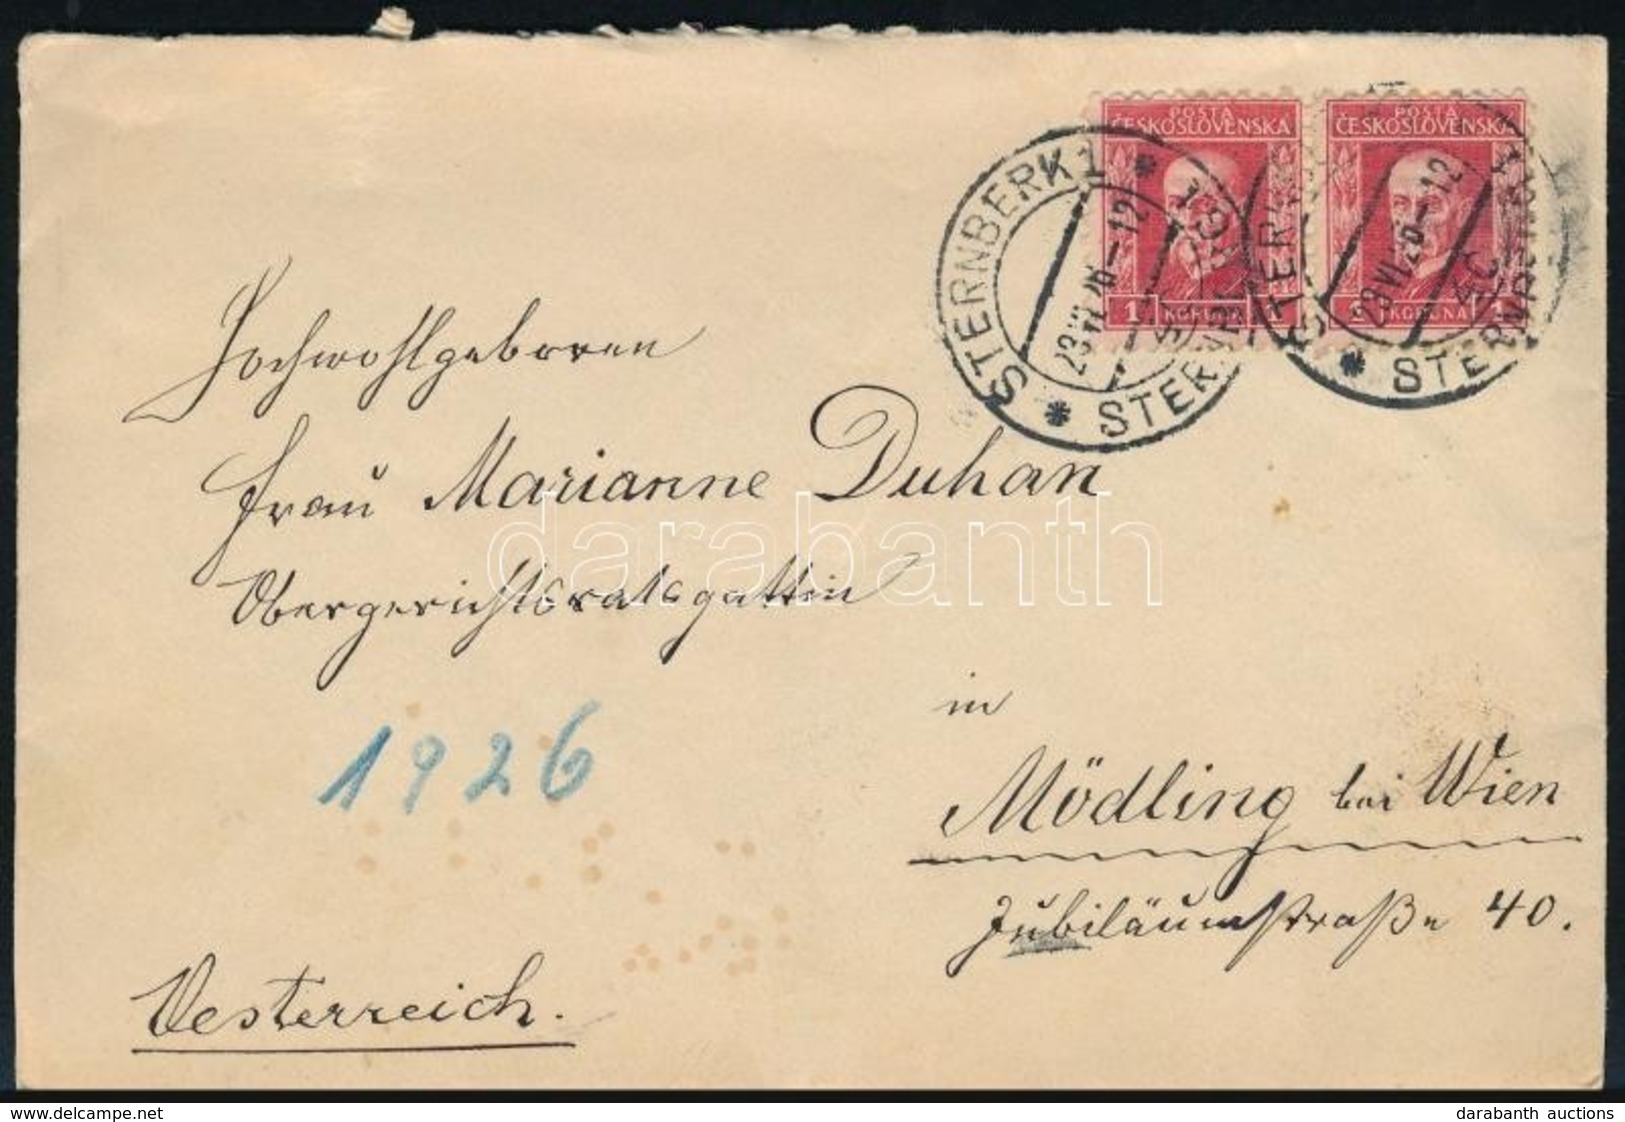 POSTA POSTA
ČESKOSLOVENSKÁ ČESKOSLOVENSKÁ
1 KORUNA 1 KORUNA 1
STERNBERK 1 * STERNBERG 1 *
23.VI.26-12 23.VI.26-12
* STERNBERG
Hochwohlgeboren
Frau Marianne Duhan
Obergerichtsratsgattin
darabanth
in
1926
Mödling bei Wien
Jubiläumstraße 40.
Oesterreich.
www.delcampe.net
darabanth auctions